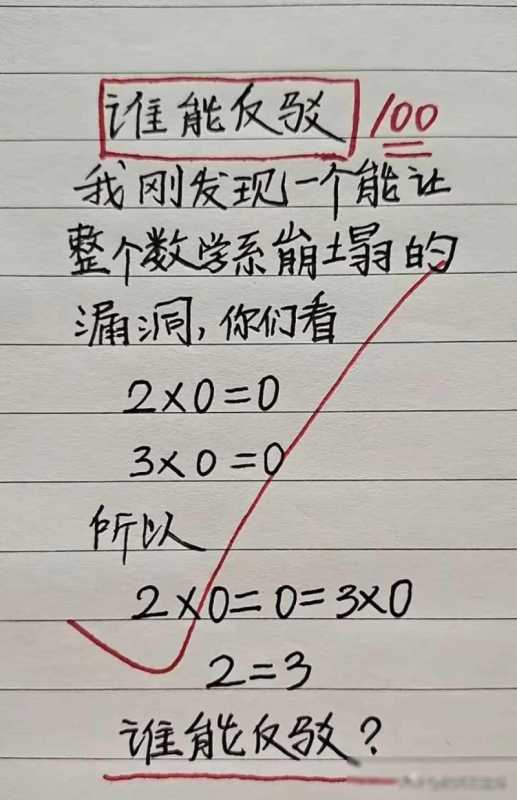 谁能反驳 100
我刚发现一个能让
整个数学系崩塌的
漏洞,你们看
2×0=0
3×0=0
所以
2×0=0=3×0
2=3
谁能反驳?